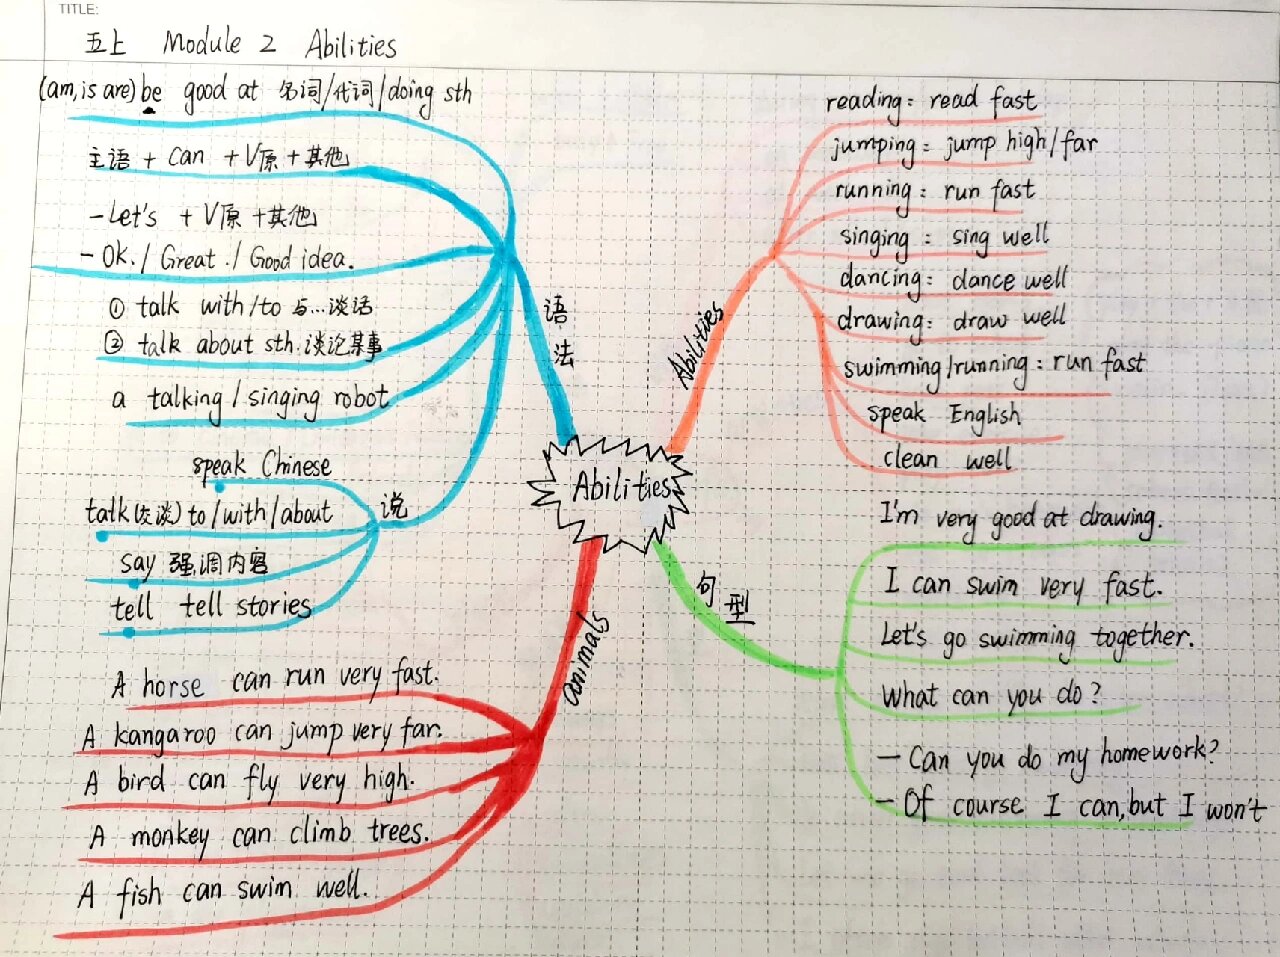 TITLE:
五上 Module 2 Abilities
(am, is are) be good at 名词/代词/doing sth
主语 + can + V原 + 其他
- Let's + V原 + 其他
- OK. / Great. / Good idea.
① talk with/to 与...谈话
② talk about sth. 谈论某事
a talking / singing robot
语法
speak Chinese
talk(交谈) to/with/about
say 强调内容
tell tell stories
说
Abilities
reading: read fast
jumping: jump high/far
running: run fast
singing: sing well
dancing: dance well
drawing: draw well
swimming/running: run fast
speak English
clean well
Abilities
句型
I'm very good at drawing.
I can swim very fast.
Let's go swimming together.
What can you do?
- Can you do my homework?
- Of course I can, but I won't
animals
A horse can run very fast.
A kangaroo can jump very far.
A bird can fly very high.
A monkey can climb trees.
A fish can swim well.